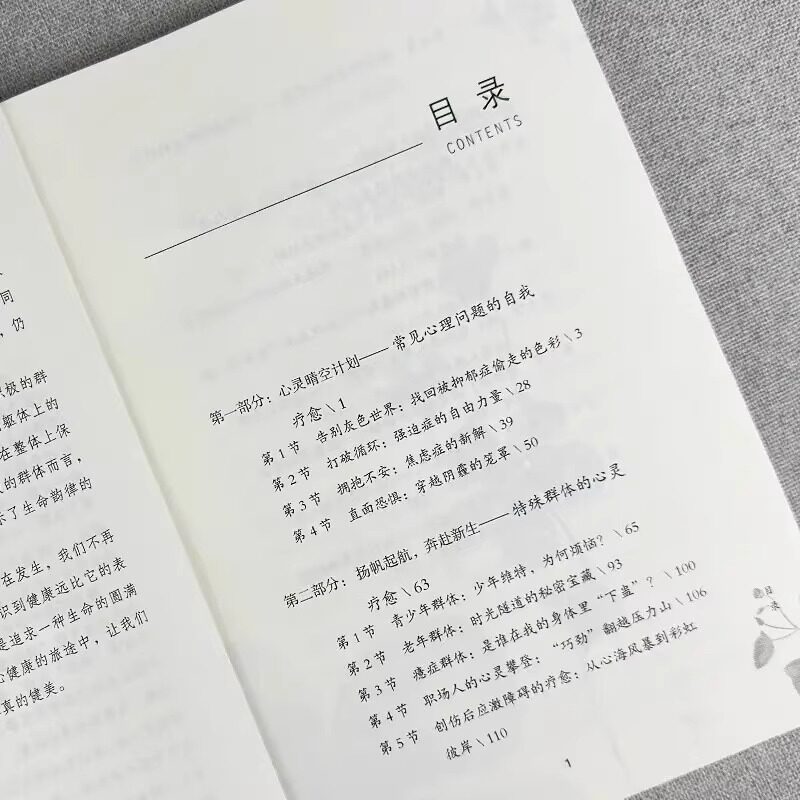 同
，仍
极的群
躯体上的
在整体上保
的群体而言，
了生命韵律的
在发生，我们不再
识到健康远比它的表
是追求一种生命的圆满
健康的旅途中，让我们
真的健美。
目 录
CONTENTS
第一部分：心灵晴空计划——常见心理问题的自我
疗愈\1
第1节 告别灰色世界：找回被抑郁症偷走的色彩\3
第2节 打破循环：强迫症的自由力量\28
第3节 拥抱不安：焦虑症的新解\39
第4节 直面恐惧：穿越阴霾的笼罩\50
第二部分：扬帆起航，奔赴新生——特殊群体的心灵
疗愈\63
第1节 青少年群体：少年维特，为何烦恼？\65
第2节 老年群体：时光隧道的秘密宝藏\93
第3节 癔症群体：是谁在我的身体里“下蛊”？\100
第4节 职场人的心灵攀登：“巧劲”翻越压力山\106
第5节 创伤后应激障碍的疗愈：从心海风暴到彩虹
彼岸\110
目录
1